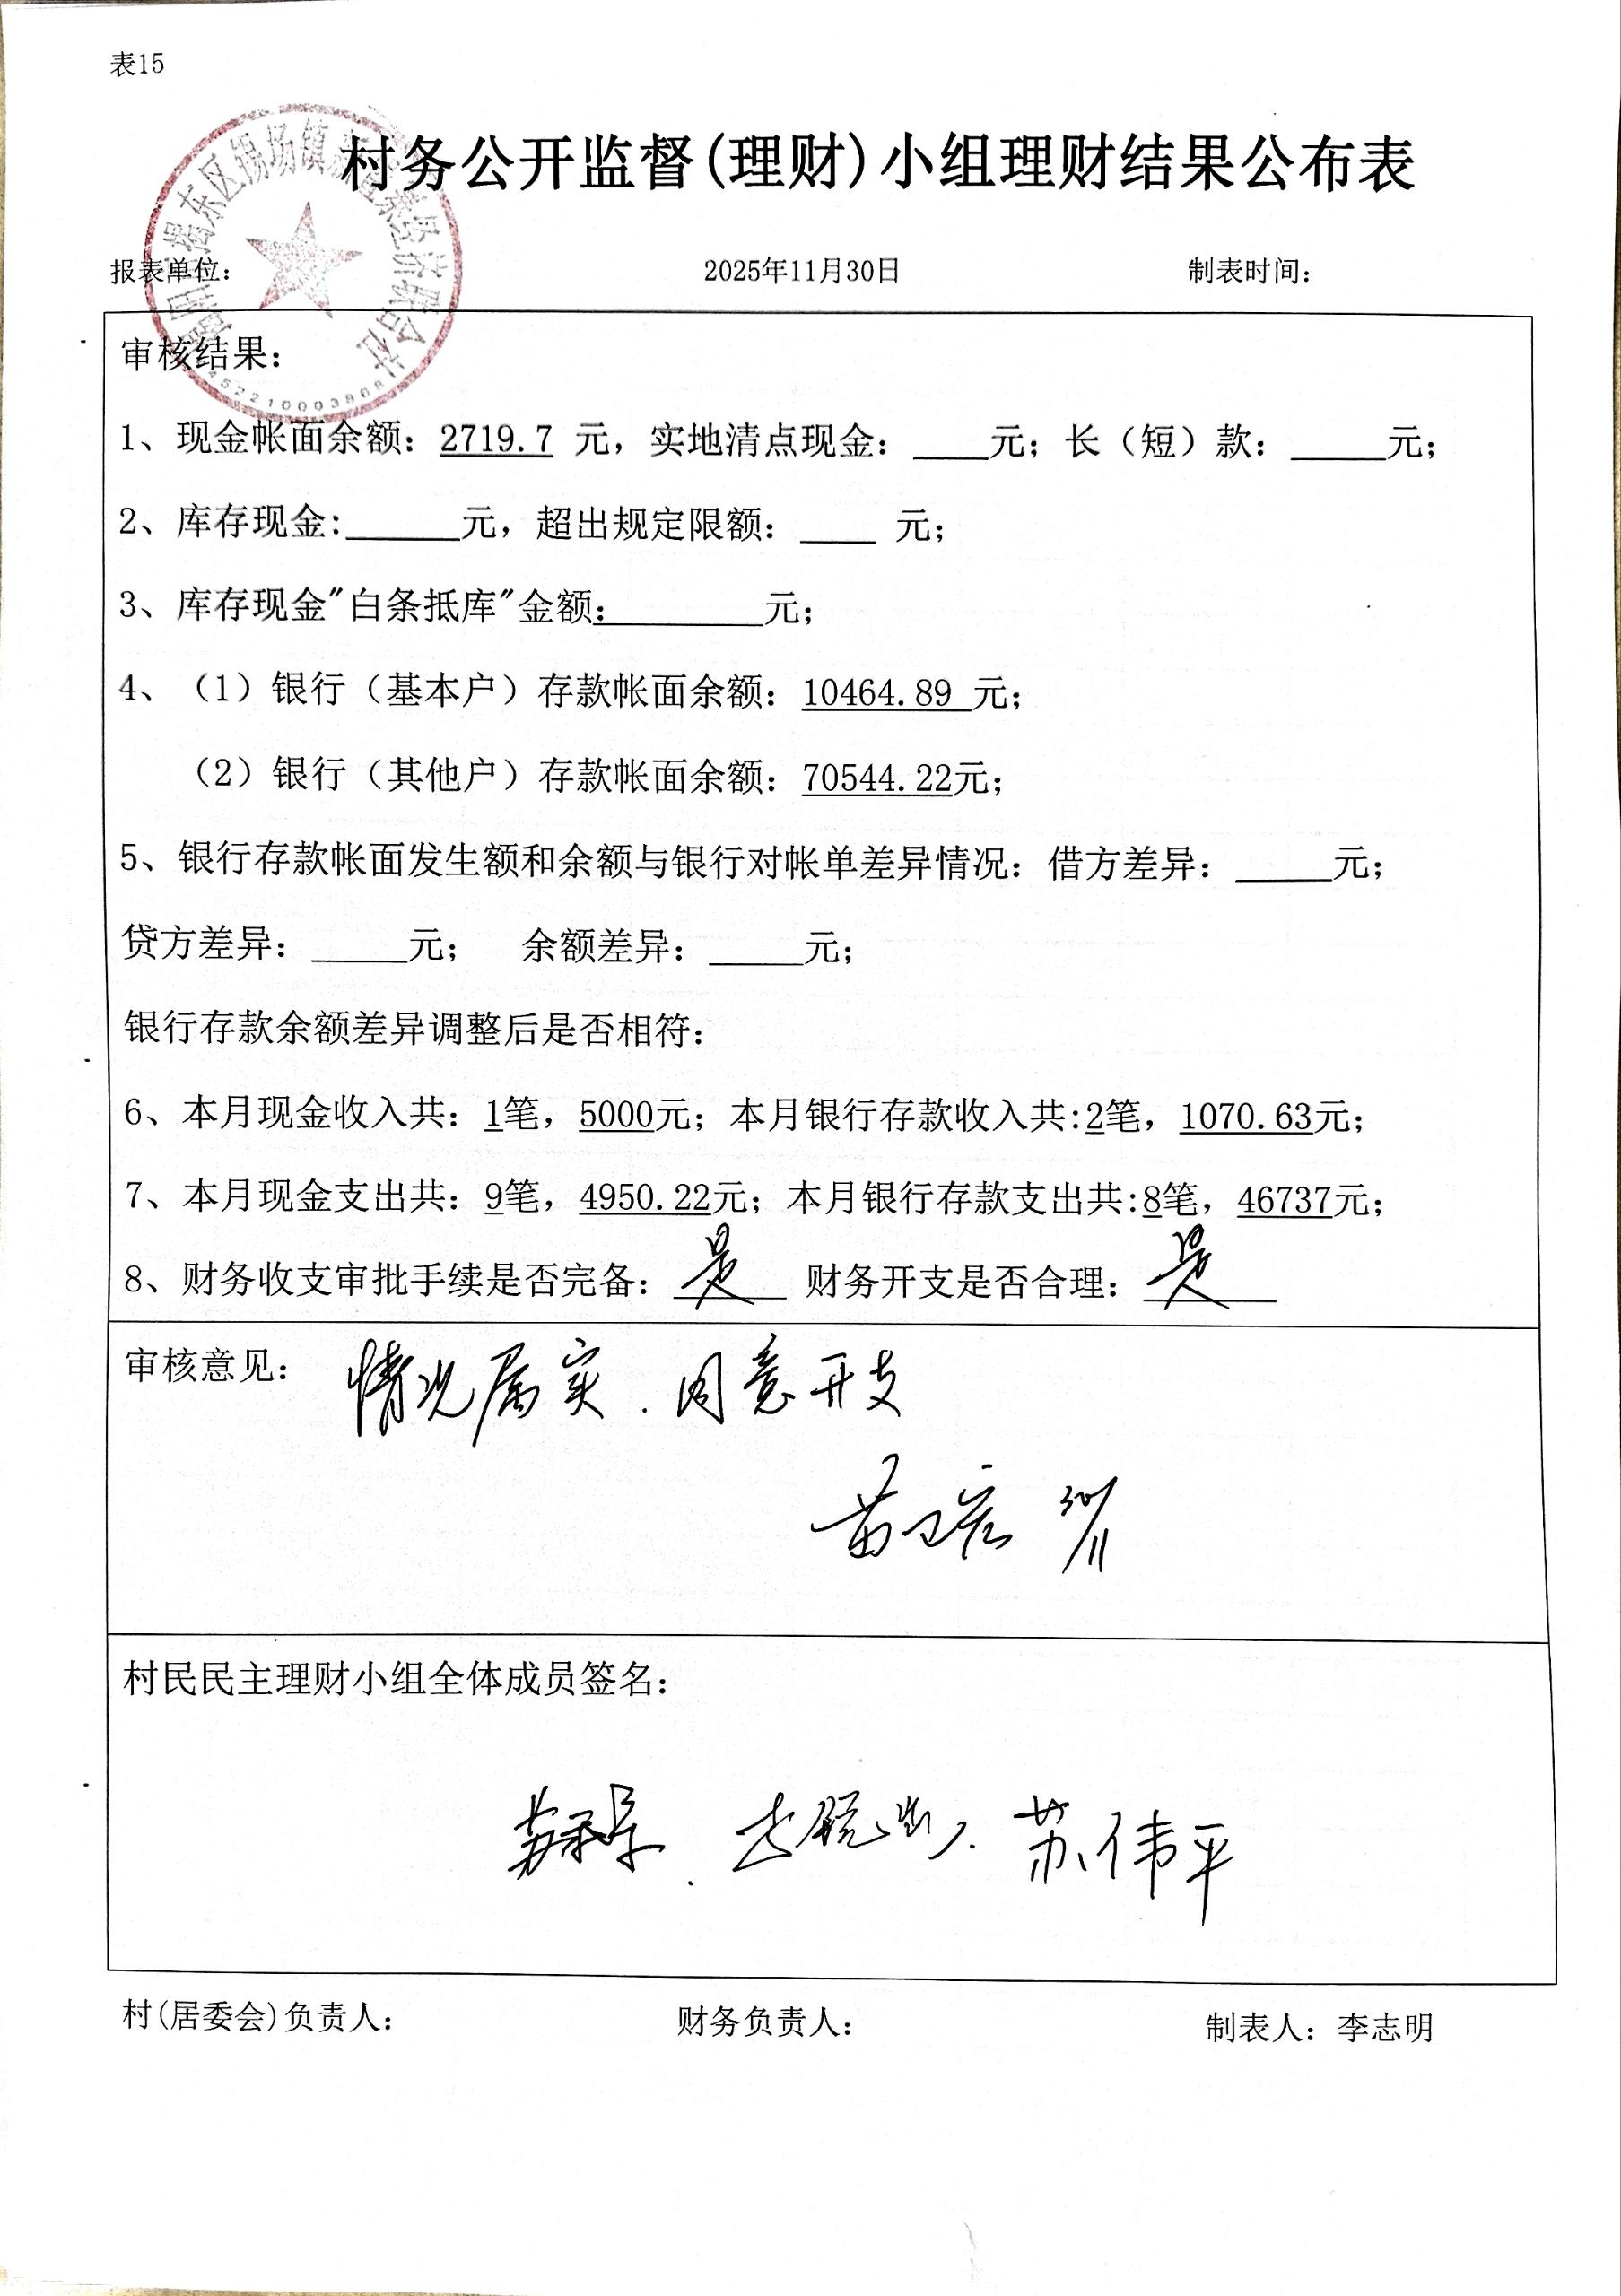 表15
村务公开监督(理财)小组理财结果公布表
报表单位： 2025年11月30日 制表时间：
审核结果：
1、现金帐面余额：2719.7 元，实地清点现金：____元；长（短）款：_____元；
2、库存现金:______元，超出规定限额：____ 元；
3、库存现金"白条抵库"金额：_________元；
4、（1）银行（基本户）存款帐面余额：10464.89 元；
（2）银行（其他户）存款帐面余额：70544.22元；
5、银行存款帐面发生额和余额与银行对帐单差异情况：借方差异：_____元；
贷方差异：_____元； 余额差异：_____元；
银行存款余额差异调整后是否相符：
6、本月现金收入共：1笔，5000元；本月银行存款收入共:2笔，1070.63元；
7、本月现金支出共：9笔，4950.22元；本月银行存款支出共:8笔，46737元；
8、财务收支审批手续是否完备：是 财务开支是否合理：是
审核意见： 情况属实．同意开支
村民民主理财小组全体成员签名：
苏伟平
村(居委会)负责人： 财务负责人： 制表人：李志明